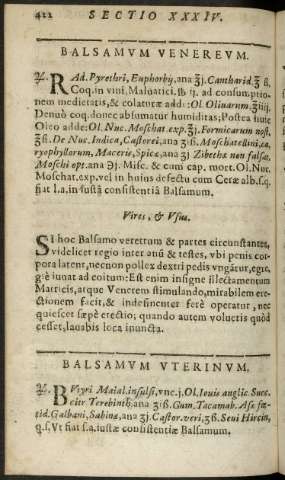 422 SECTIO XXXIV.
BALSAMVM VENEREVM.
℞. RAd. Pyrethri, Euphorbij, ana ʒj. Cantharid. ʒß.
Coq. in vini, Maluatici. ℔ ij. ad consun. ptio-
nem medietatis, & colaturæ adde: Ol. Oliuarum, ℥iiij.
Denuò coq. donec absumatur humiditas; Postea huic
Oleo adde: Ol. Nuc. Moschat. exp. ℥j. Formicarum nost.
℥ß. De Nuc. Indica, Castorei, ana ʒiß. Moschatellini, ca-
ryophyllorum, Maceris, Spicæ, ana ʒj Zibethæ non falsæ,
Moschi opt. ana ℈j. Misc. & cum cap. mort. Ol. Nuc.
Moschat. exp. vel in huius defectu cum Ceræ alb. s. q.
fiat l. a. in iustâ consistentiâ Balsamum.
Vires, & Vsus.
SI hoc Balsamo veretrum & partes circunstantes,
videlicet regio inter anũ & testes, vbi penis cor-
pora latent, necnon pollex dextri pedis vngãtur, egre-
giè iuuat ad coitum: Est enim insigne illectamentum
Matricis, atque Venerem stimulando, mirabilem ere-
ctionem facit, & indesinenter ferè operatur, nec
quiescet sæpè erectio; quando autem volueris quòd
cesset, lauabis loca inuncta.
BALSAMVM VTERINVM.
℞. BVtyri Maial. insulsi, vnc. j. Ol. Iouis anglic. Succ.
citr Terebinth; ana ʒiß. Gum. Tacamah. Asæ fœ-
tid. Galbani, Sabinæ, ana ʒj. Castor. veri, ʒß. Seui Hircin,
q. s. Vt fiat s. a. iustæ consistentiæ Balsamum.